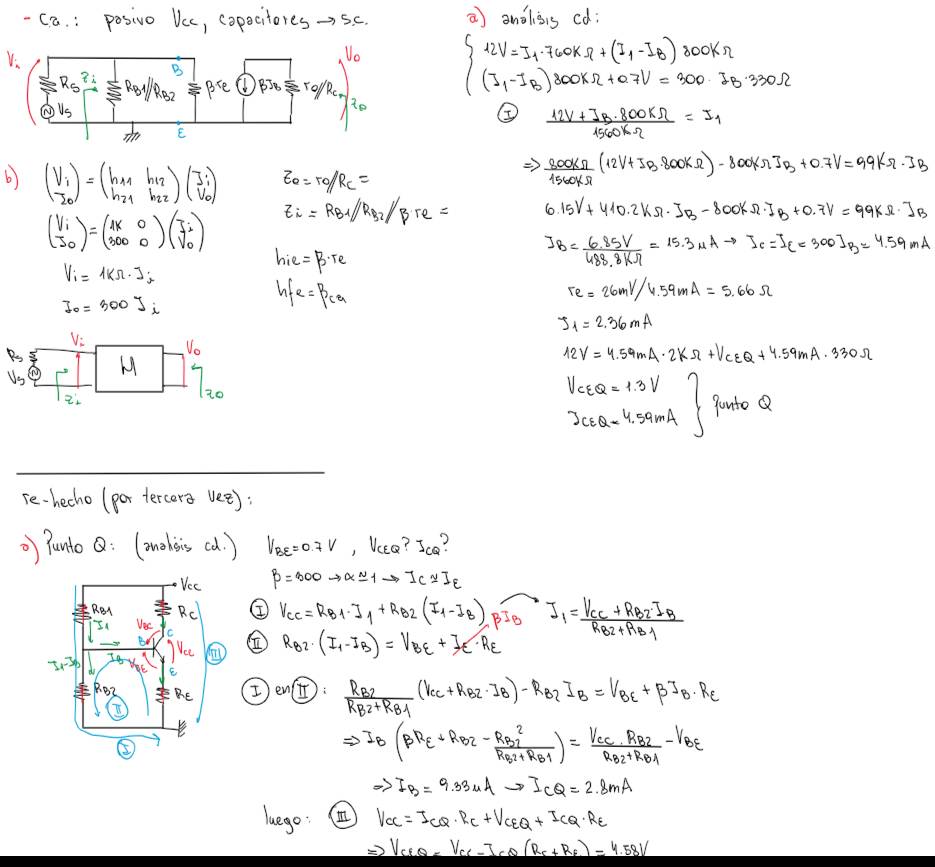 - c.a.: pasivo Vcc, capacitores → s.c.
Vi
RS
VS
Zi
RB1//RB2
B
E
βre
βIB
ro//RC
Vo
Zo
b) (Vi Io) = (h11 h12 h21 h22) (Ii Vo)
(Vi Io) = (1K 0 300 0) (Ii Vo)
Vi = 1KΩ·Ii
Io = 300 Ii
Zo = ro//RC =
Zi = RB1//RB2//βre =
hie = β·re
hfe = βca
RS
VS
Vi
Zi
H
Vo
Zo
a) análisis cd:
12V = I1·760KΩ + (I1-IB) 800KΩ
(I1-IB) 800KΩ + 0.7V = 300·IB·330Ω
I (12V + IB·800KΩ)/1560KΩ = I1
⇒ 800KΩ/1560KΩ (12V + IB 800KΩ) - 800KΩ IB + 0.7V = 99KΩ·IB
6.15V + 410.2KΩ·IB - 800KΩ·IB + 0.7V = 99KΩ·IB
IB = 6.85V/488.8KΩ = 15.3μA → IC=IE = 300IB = 4.59mA
re = 26mV/4.59mA = 5.66Ω
I1 = 2.36mA
12V = 4.59mA·2KΩ + VCEQ + 4.59mA·330Ω
VCEQ = 1.3V
ICEQ = 4.59mA
Punto Q
re-hecho (por tercera vez):
a) Punto Q: (análisis cd.) VBE=0.7V, VCEQ? ICQ?
β=300 → α≈1 → IC≈IE
I VCC = RB1·I1 + RB2 (I1-IB)
I1 = (VCC + RB2·IB)/(RB2+RB1)
II RB2·(I1-IB) = VBE + IE·RE
βIB
VCC
RB1
RC
I1
VBC
C
B
IB
VCE
VBE
E
I1-IB
RB2
RE
II
III
I
I en II: RB2/(RB2+RB1) (VCC + RB2·IB) - RB2 IB = VBE + βIB·RE
⇒ IB (βRE + RB2 - RB2²/(RB2+RB1)) = VCC·RB2/(RB2+RB1) - VBE
⇒ IB = 9.33μA → ICQ = 2.8mA
luego: III VCC = ICQ·RC + VCEQ + ICQ·RE
⇒ VCEQ = VCC - ICQ (RC+RE) = 4.58V